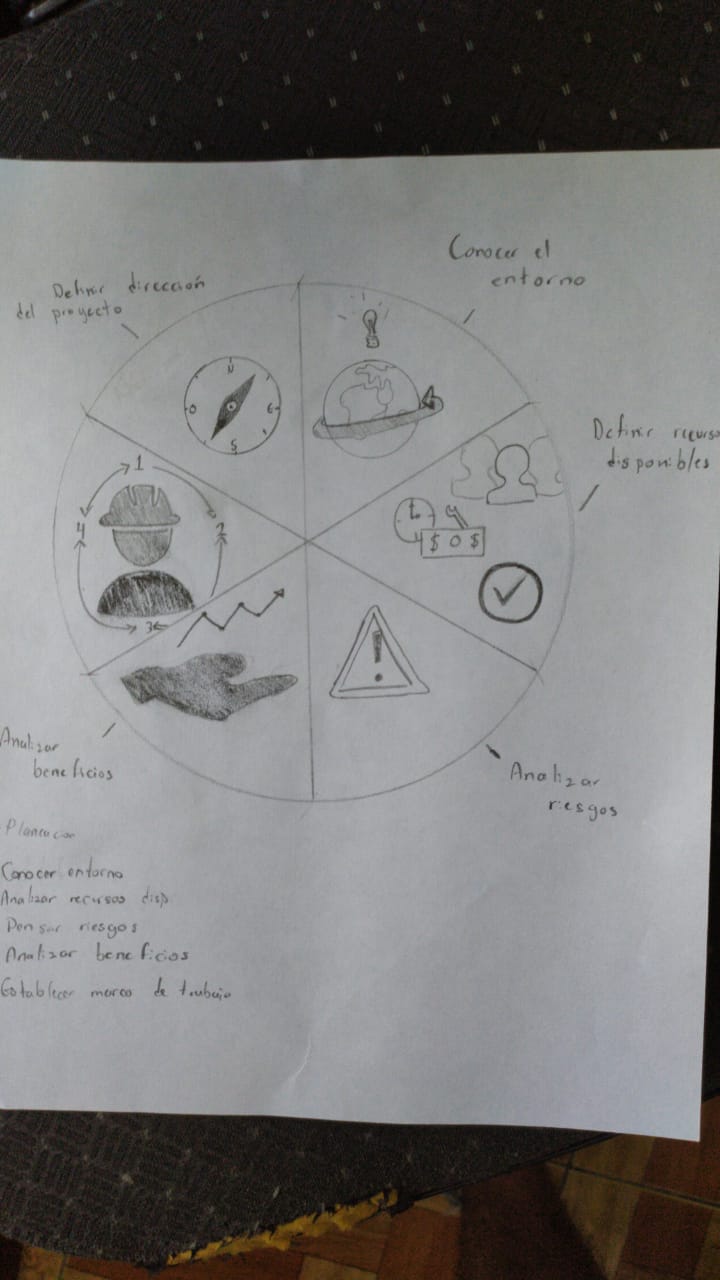 Conocer el
entorno
Definir dirección
del proyecto
Definir recurso
disponibles
N
O
E
S
1
2
3
4
$ 0 $
!
Analizar
beneficios
Analizar
riesgos
Planeacion
Conocer entorno
Analizar recursos disp
Pensar riesgos
Analizar beneficios
Establecer marco de trabajo